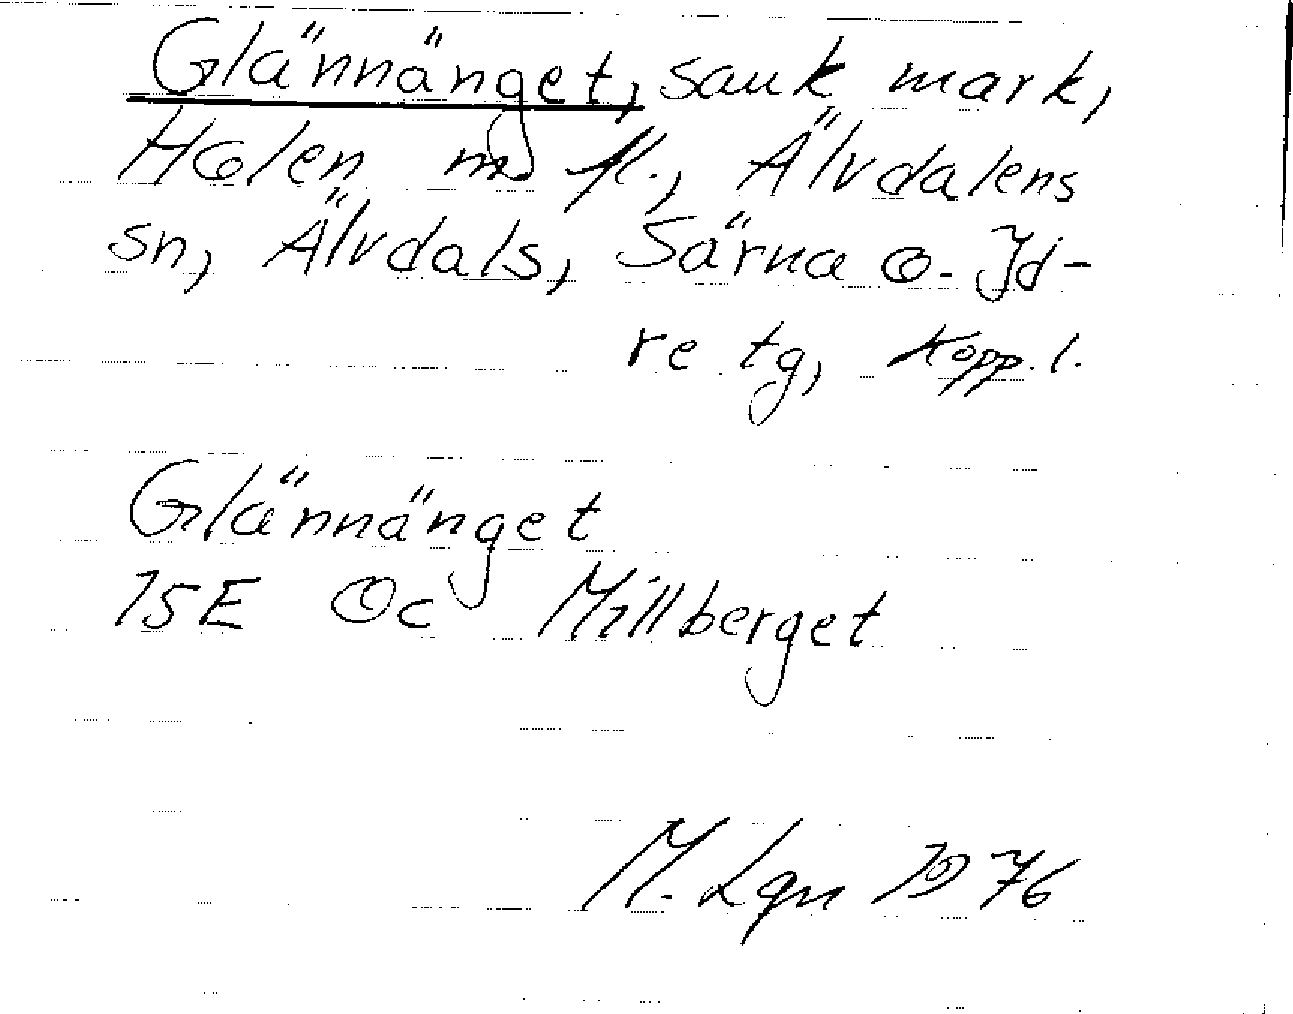 Glännänget, sank mark,
Holen m fl., Älvdalens
sn, Älvdals, Särna o. Id-
re tg, Kopp. l.
Glännänget
15E Oc Millberget
M. Lgn 1976